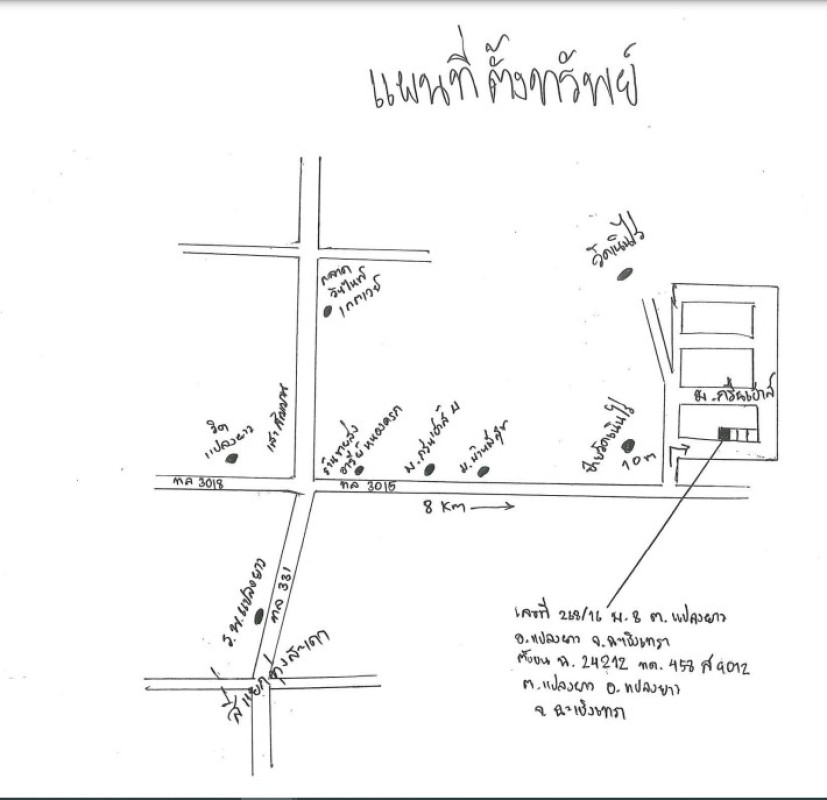 แผนที่ตั้งทรัพย์
วัดเนินไร่
ตลาด
วันไนท์
เกตเวย์
ม.กรีนเฮ้าส์
วิค
แปลงยาว
เสาสัญญาณ
ร้านขายส่ง
อารีย์หนองครก
ม.กรีนเฮ้าส์
ม.บ้านมีสุข
ป้ายวัดเนินไร่
10 m
ทล 3018
ทล 3015
8 KM
ร.พ.แปลงยาว
ทล 331
สี่แยกทุ่งสะเดา
เลขที่ 268/16 ม.8 ต.แปลงยาว
อ.แปลงยาว จ.ฉะเชิงเทรา
ตั้งบน ฉ. 24212 ทด. 458 ส 9012
ต.แปลงยาว อ.แปลงยาว
จ ฉะเชิงเทรา